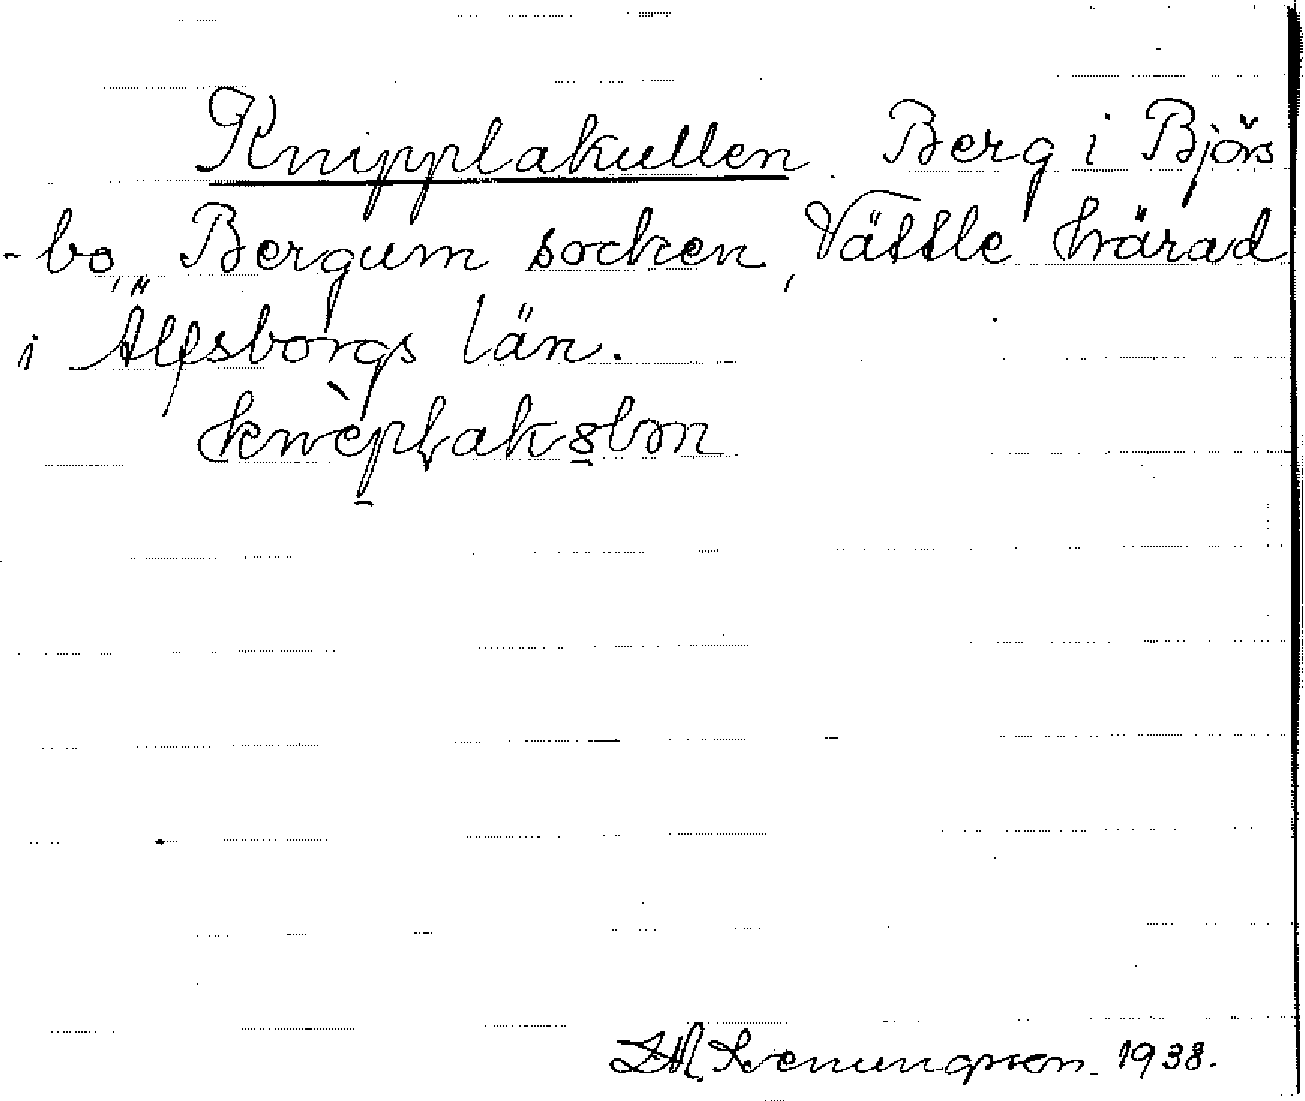 Knipplakullen. Berg i Björs
-bo, Bergum socken, Vättle härad
i Älfsborgs län.
Svenungsson. 1938.